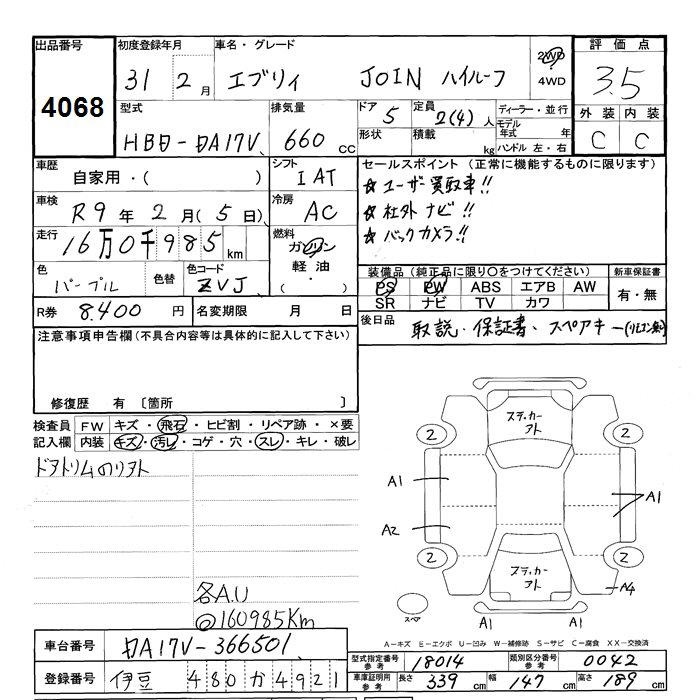 出品番号
4068
初度登録年月
31 2月
車名・グレード
エブリィ JOIN ハイルーフ
2WD
4WD
評価点
3.5
外装 内装
C C
型式
HBD-DA17V
排気量
660 CC
ドア
5
形状
定員
2(4)人
積載
kg
ディーラー・並行
モデル年式 年
ハンドル 左・右
車歴
自家用・( )
シフト
IAT
車検
R9年2月(5日)
冷房
AC
走行
16万0千985km
燃料
ガソリン
軽油
・
( )
色
パープル
色替
色コード
ZVJ
R券 8.400円
名変期限 月 日
セールスポイント (正常に機能するものに限ります)
☆ユーザー買取車!!
☆社外ナビ!!
☆バックカメラ!!
装備品(純正品に限り○をつけてください)
PS PW ABS エアB AW
SR ナビ TV カワ
新車保証書
有・無
後日品
取説・保証書・スペアキー
注意事項申告欄(不具合内容等は具体的に記入して下さい)
修復歴 有 〔箇所 〕
検査員記入欄
FW キズ・飛石・ヒビ割・リペア跡・×要
内装 キズ・汚レ・コゲ・穴・スレ・キレ・破レ
ドアトリムのリアト
各A.U
◎160985Km
ステッカー
アト
2
2
A1
A1
A2
2
2
ステッカー
アト
A4
スペア
A1 A1
A-キズ E-エクボ U-凹み W-補修跡 S-サビ C-腐食 XX-交換済
車台番号 DA17V-366501
登録番号 伊豆 480か4921
型式指定番号参考 18014
類別区分番号参考 0042
車庫証明用参考
長さ 339cm
幅 147cm
高さ 189cm